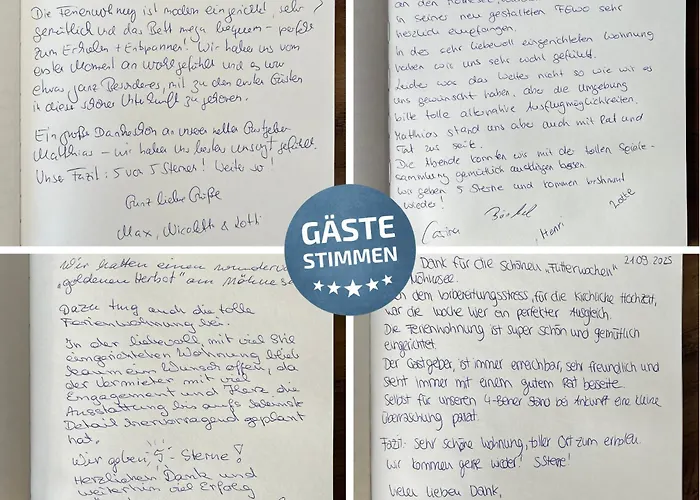 Die Ferienwohnung ist modern eingerichtet, sehr
gemütlich und das Bett mega bequem - perfekt
zum Erholen + Entspannen! Wir haben uns vom
ersten Moment an wohlgefühlt und es war
etwas ganz Besonderes, mit zu den ersten Gästen
in dieser schönen Unterkunft zu gehören.
Ein großes Dankeschön an unseren tollen Gastgeber
Matthias - wir haben uns bestens umsorgt gefühlt.
Unser Fazit: 5 von 5 Sternen! Weiter so!
Ganz liebe Grüße
Max, Nicoleth & Lotti
an den
in seiner neu gestalteten FeWo sehr
herzlich empfangen.
In des sehr liebevoll eingerichteten Wohnung
haben wir uns sehr wohl gefühlt.
Leider war das Wetter nicht so wie wir es
uns gewünscht haben, aber die Umgebung
bitte tolle alternative Ausflugmöglichkeiten.
Matthias stand uns aber auch mit Rat und
Tat zur seite.
Die Abende konnten wir mit der tollen Spiele-
sammlung gemütlich ausklingen lassen.
Wir geben 5 Sterne und kommen bestimmt
wieder!
Carina
Henri
Lotte
GÄSTE
STIMMEN
Wir hatten einen
"goldenen Herbst" am Möhnese
Dazu trug auch die tolle
Ferienwohnung bei.
In der liebevoll, mit viel Stil
eingerichteten Wohnung blieb
kaum ein Wunsch offen, da
der Vermieter mit viel
Engagement und Herz die
Ausstattung bis aufs kleinste
Detail hervorragend geplant
hat.
Wir geben 5-Sterne!
Herzlichen Dank und
weiterhin viel Erfolg
Dank für die schönen "Flitterwochen" 21.09.2025
Möhnesee.
dem Vorbereitungsstress, für die Kirchliche Hochzeit,
war die Woche hier ein perfekter Ausgleich.
Die Ferienwohnung ist super schön und gemütlich
eingerichtet.
Der Gastgeber, ist immer erreichbar, sehr freundlich und
steht immer mit einem gutem Rat beiseite.
Selbst für unseren 4-Beiner stand bei Ankunft eine kleine
Überraschung parat.
Fazit: Sehr schöne Wohnung, toller Ort zum erholen.
Wir kommen gerne wieder! 5 Sterne!
Vielen lieben Dank,